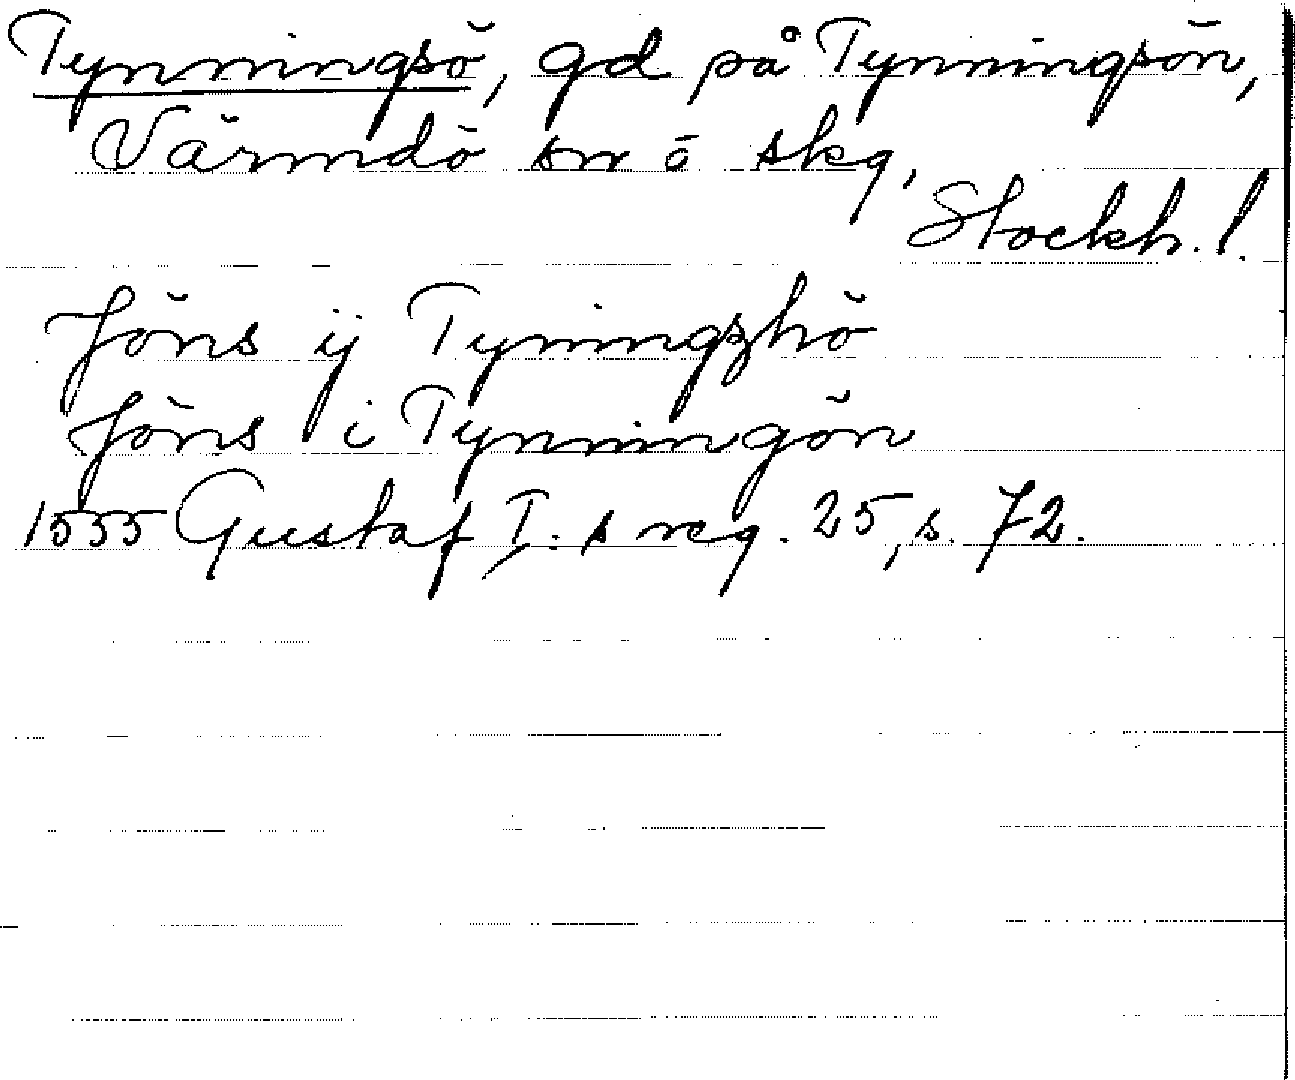 Tynningsö, gd på Tynningsön,
Värmdö sn o skg,
Stockh. l.
Jöns ij Tyningzhö
Jöns i Tynningön
1555 Gustaf I:s reg. 25, s. 72.